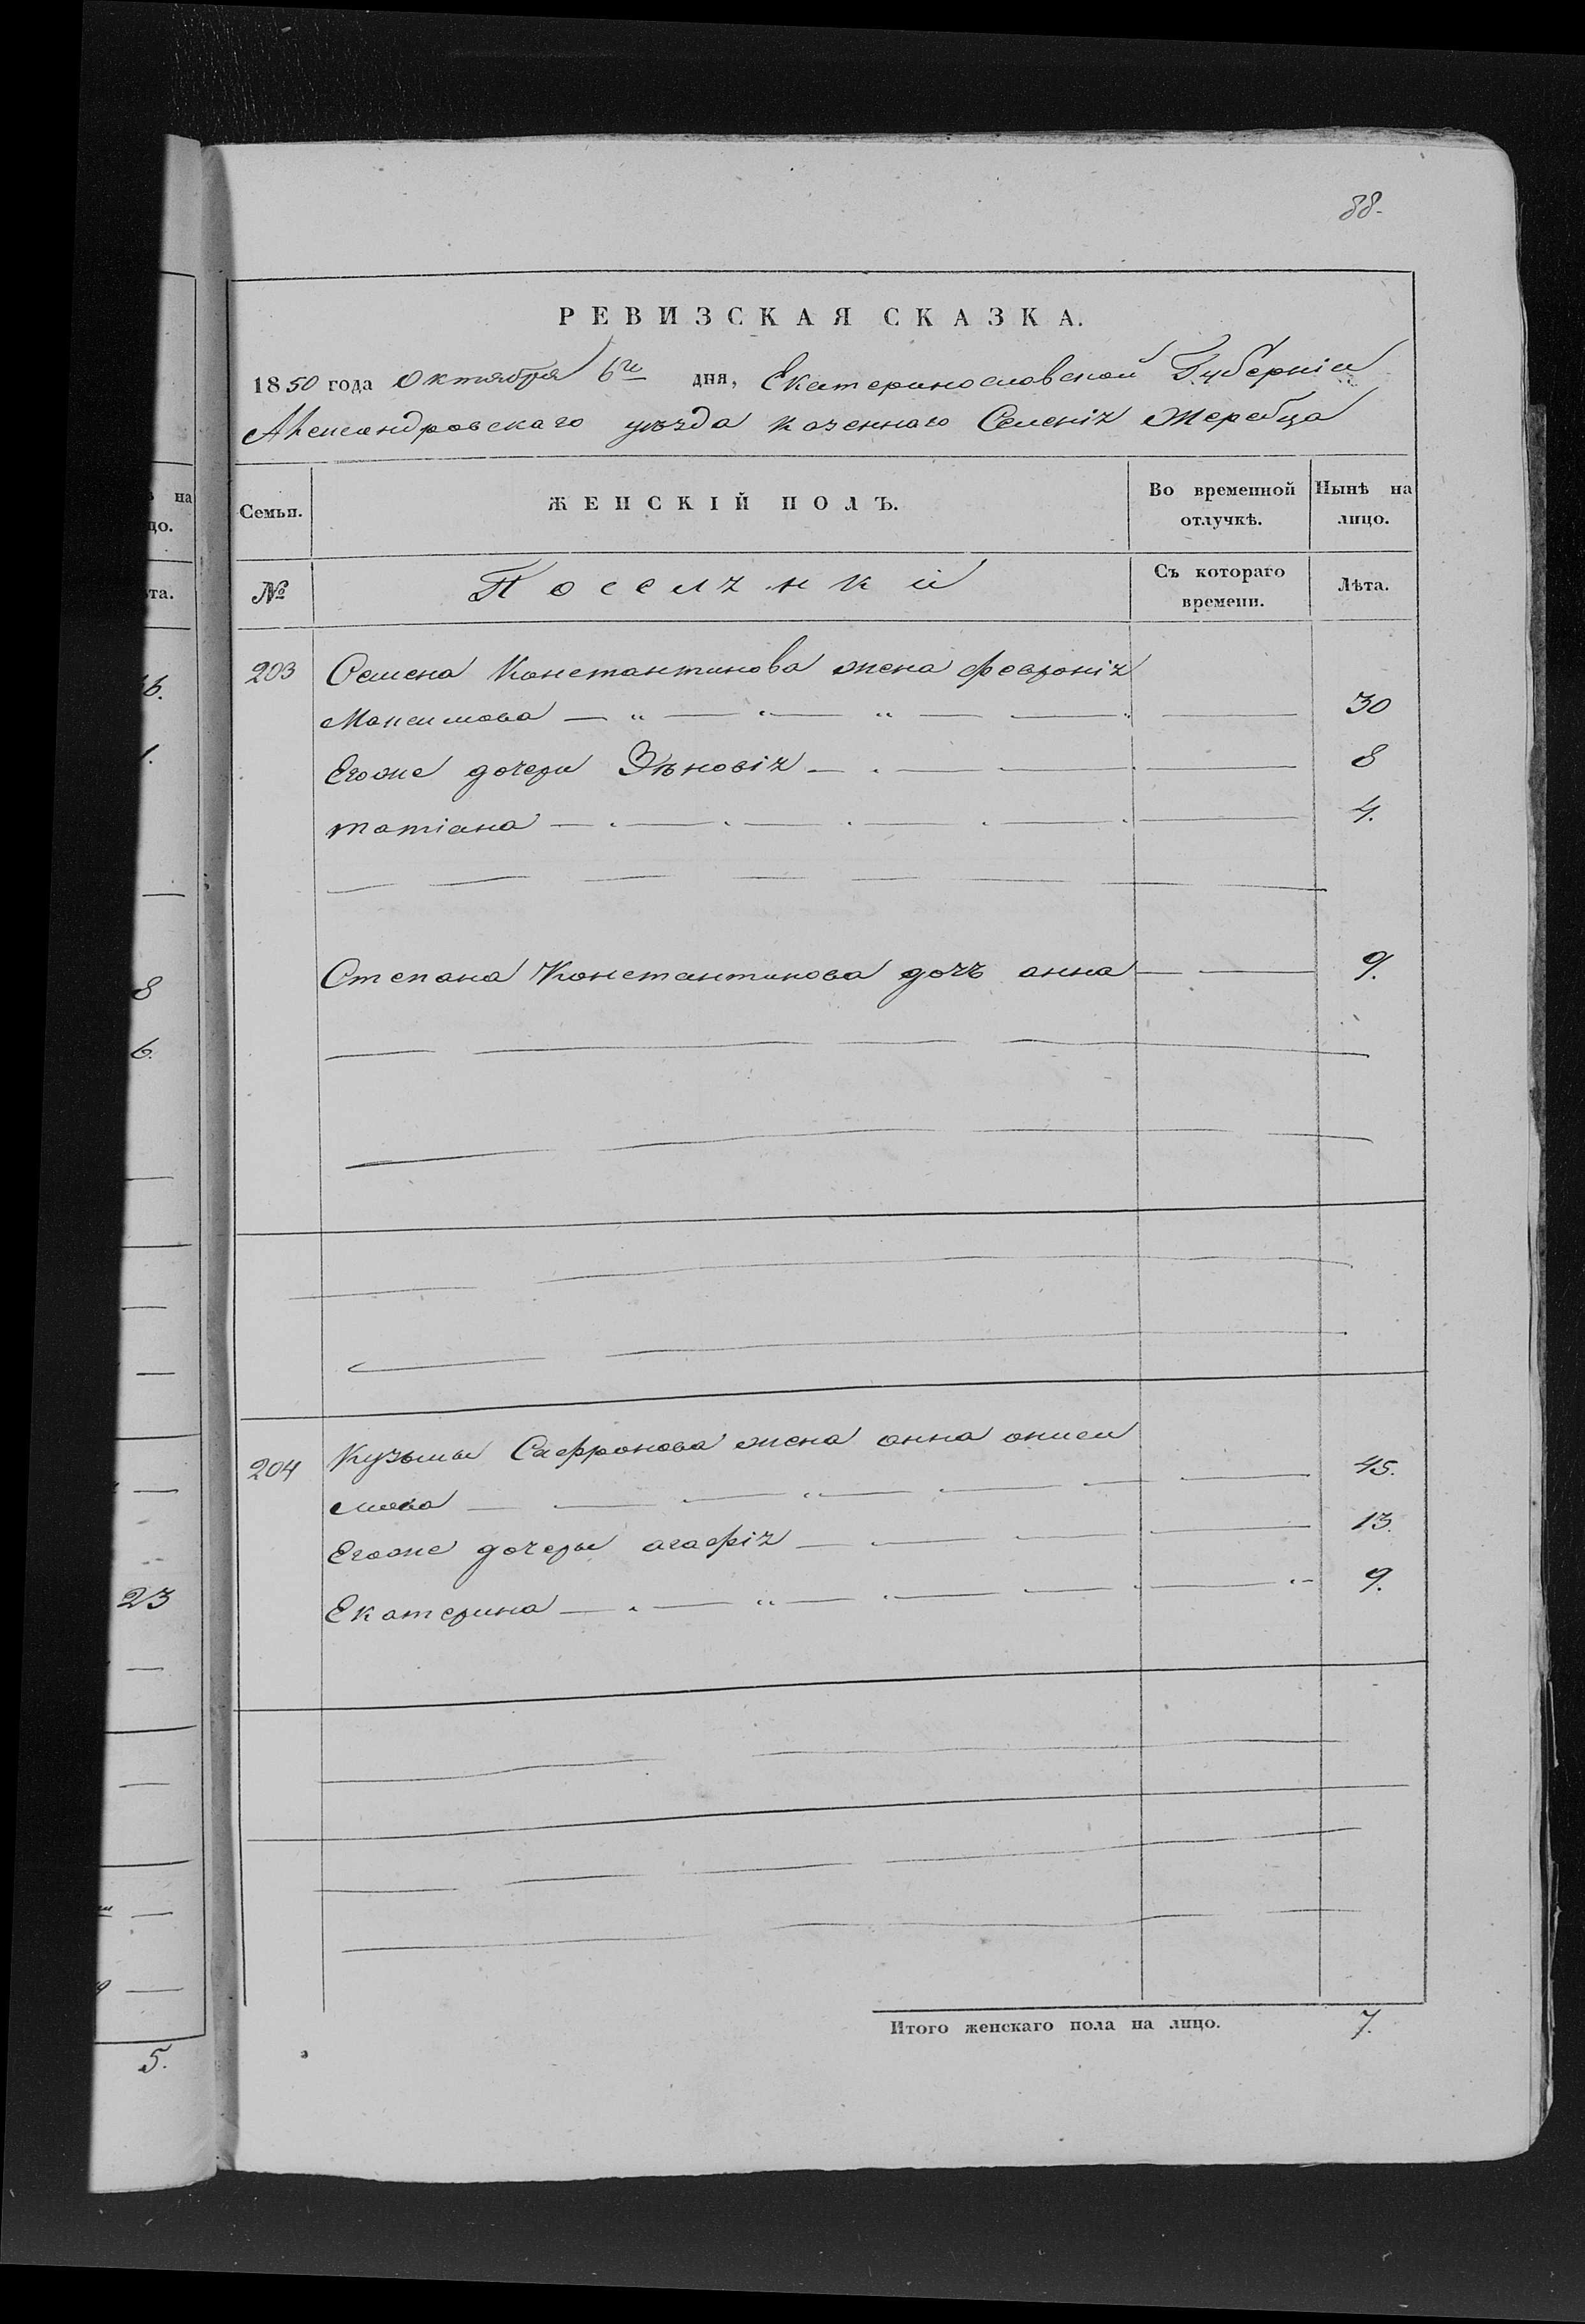 88.
РЕВИЗСКАЯ СКАЗКА.
1850 года Октября 6го дня, Екатеринославской Губерніи
Александровскаго уезда казеннаго Селенія Жеребца
Семьи.
ЖЕНСКІЙ ПОЛЪ.
Во временной отлучкѣ.
Нынѣ на лицо.
№
Поселянки
Съ котораго времени.
Лѣта.
203 Семена Константинова жена февронія
Максимова 30
Егоже дочери Зѣновія 8
татіана 4.
Степана Константинова дочь анна 9.
204 Кузьмы Сафронова жена анна аниси
мова 45.
Егоже дочери агафія 13.
Екатерина 9.
Итого женскаго пола на лицо. 7.
на
цо.
та.
6.
1.
8
6.
23
5.